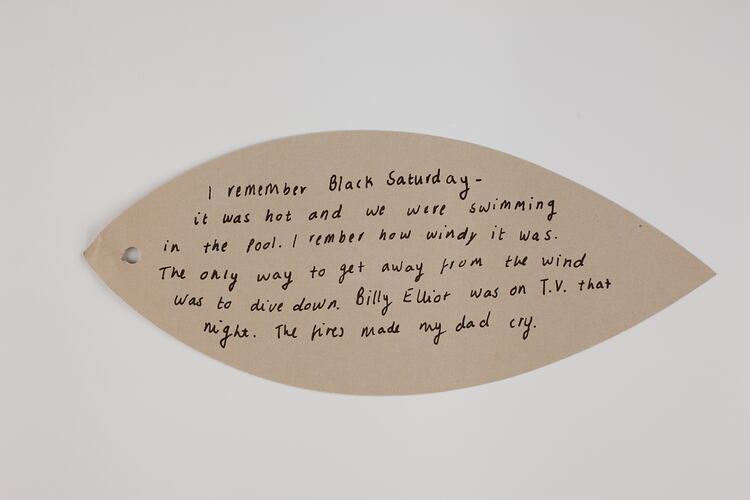 I remember Black Saturday -
it was hot and we were swimming
in the pool. I rember how windy it was.
The only way to get away from the wind
was to dive down. Billy Elliot was on T.V. that
night. The fires made my dad cry.